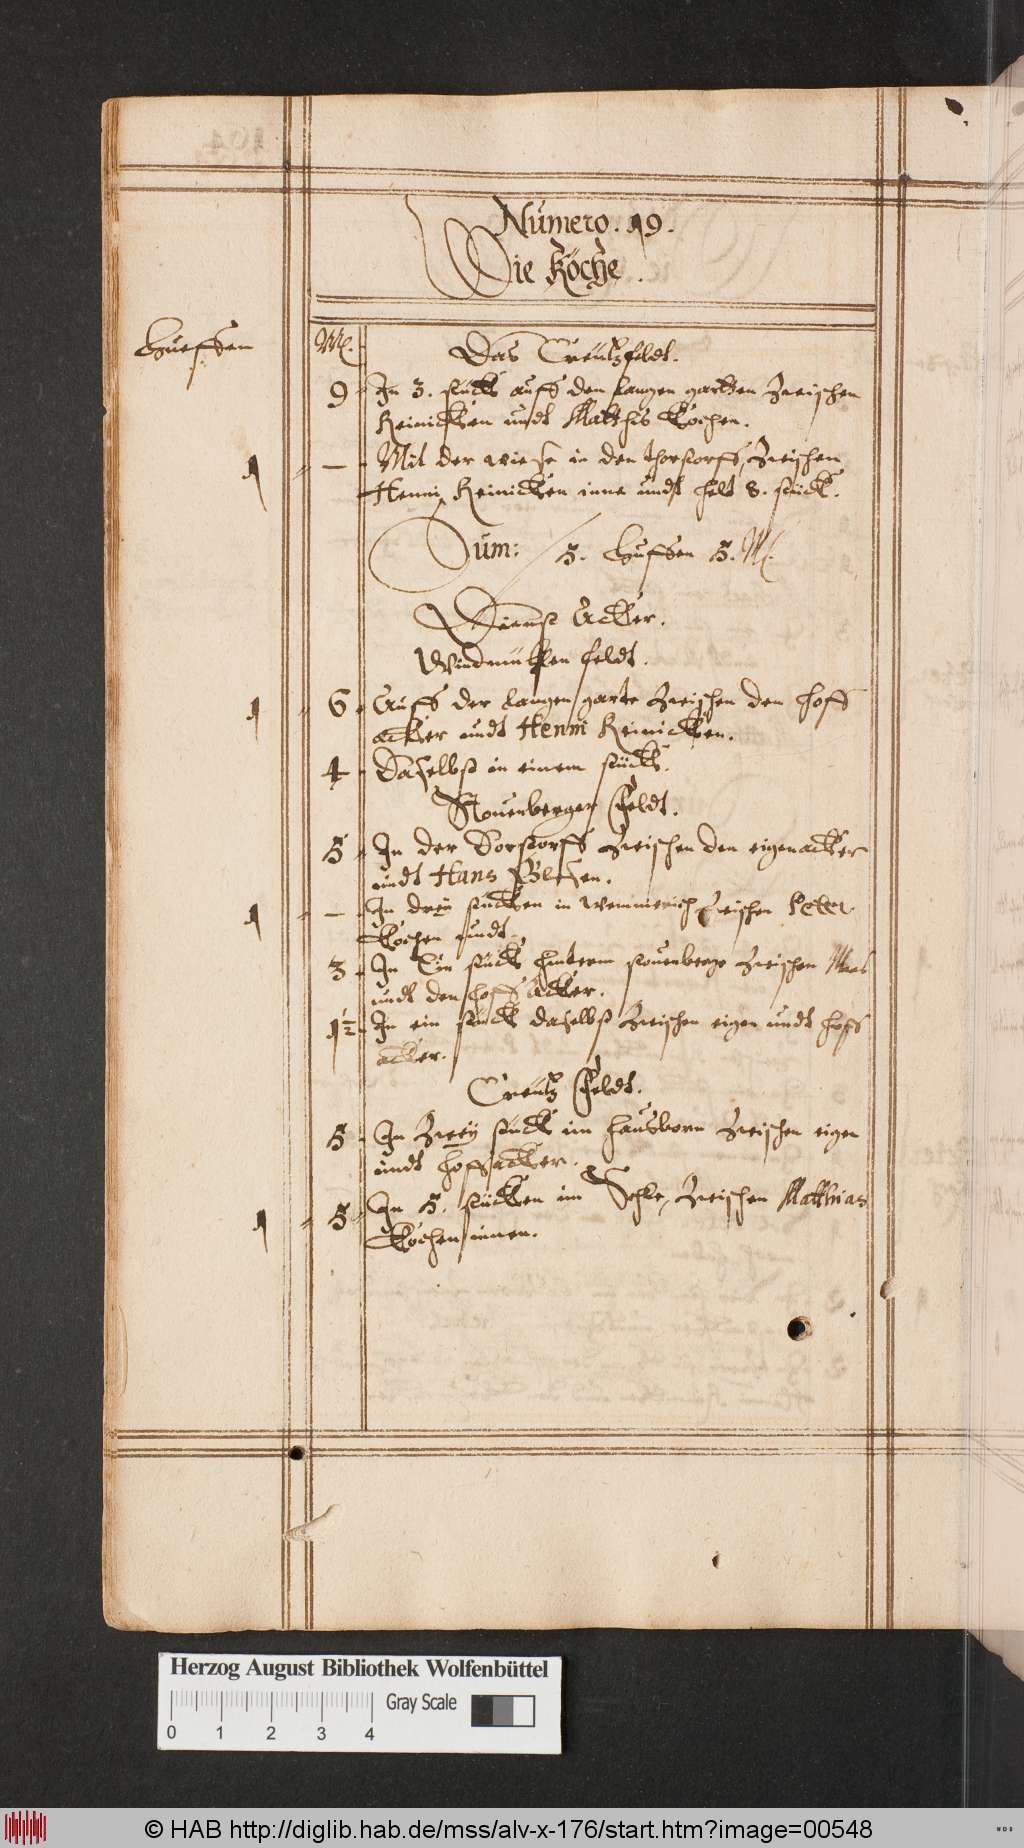 Numero. 19.
Die Köche.
Hueffen
M.
Das Creützfeldt.
9 In 3. stück auff den langen garten Zwischen
Reinicken undt Matthis Kochen.
1 — Mit der wiese in den thorstorff, Zwischen
Henni Reinicken inne undt helt 8. stück.
Sum: 5. Hueffen 5. M.
Dienst Acker.
Windmühlen feldt.
1 6 Auff der langen garte Zwischen den hoff
acker undt Henni Reinicken.
4 Daselbst in einem stück.
Stouenberger Feldt.
5 In der Dorstorff Zwischen den eigen acker
undt Hans
1 — In drey stücken in Zwischen Peter
Kochen undt
3 In Ein stück hinterm stouenberge Zwischen
undt den hoff Acker.
1½ In ein stück daselbst Zwischen eigen undt hoff
acker.
Creütz Feldt.
5 In Zwey stück im hausborn Zwischen eigen
undt hoff acker.
1 5 In 5. stücken im Zwischen Matthias
Kochen innen.
Herzog August Bibliothek Wolfenbüttel
Gray Scale
0 1 2 3 4
© HAB http://diglib.hab.de/mss/alv-x-176/start.htm?image=00548